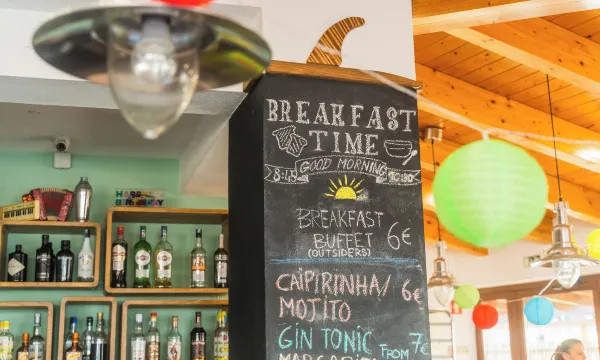 BREAKFAST
TIME
GOOD MORNING
8:15 10:30
BREAKFAST
BUFFET 6€
(OUTSIDERS)
CAIPIRINHA/ 6€
MOJITO
GIN TONIC FROM 7€